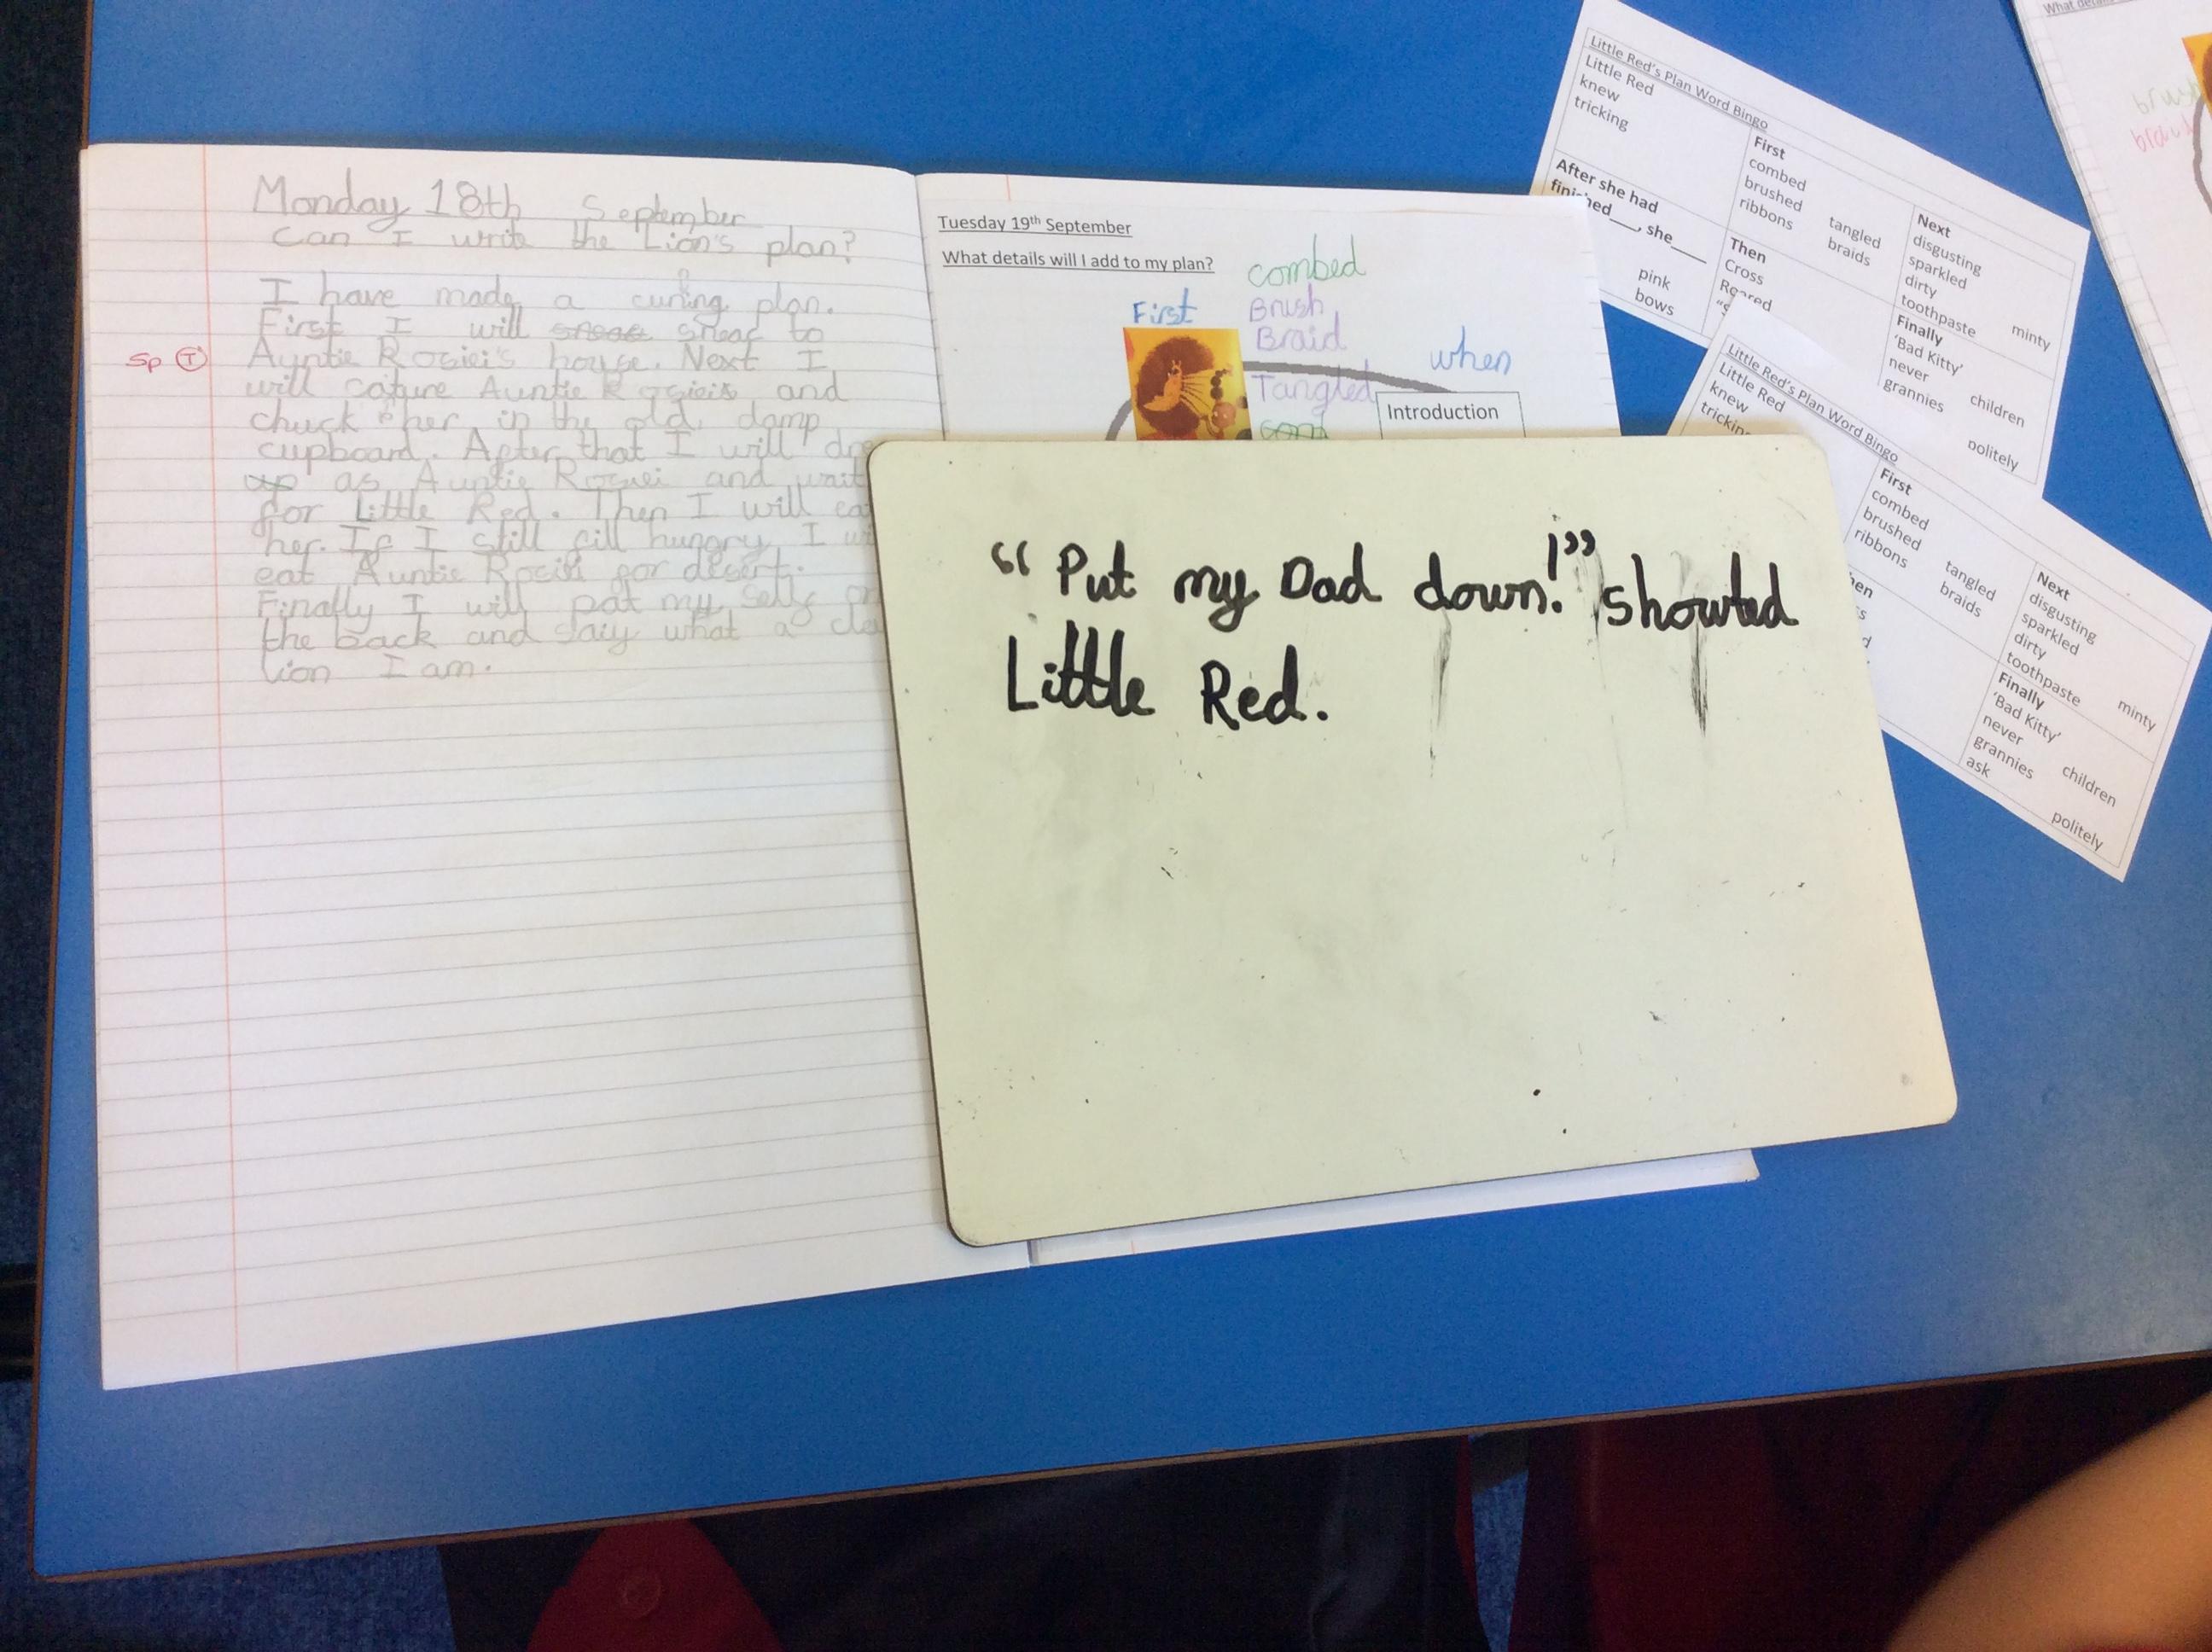 Monday 18th September
Can I write the Lion's plan?
I have made a cuning plan.
First I will to
Sp T
Auntie Rosiei's house. Next I
will cature Auntie and
chuck her in the old, damp
cupboard. After that I will
up as Auntie and wait
for Little Red. Then I will
her. If I still fill hungry I
eat Auntie for desert.
Finally I will pat my
the back and what a
lion I am.
Tuesday 19th September
What details will I add to my plan?
combed
First
Brush
Braid
when
Tangled
Introduction
"Put my Dad down!" showted
Little Red.
Little Red's Plan Word Bingo
Little Red
knew
tricking
First
combed
brushed
ribbons
tangled
braids
Next
disgusting
sparkled
dirty
toothpaste
minty
After she had
finished____, she____
pink
bows
Then
Cross
Roared
Finally
'Bad Kitty'
never
grannies
children
politely
Little Red's Plan Word Bingo
Little Red
knew
First
combed
brushed
ribbons
tangled
braids
Next
disgusting
sparkled
dirty
toothpaste
minty
Finally
'Bad Kitty'
never
grannies
ask
children
politely